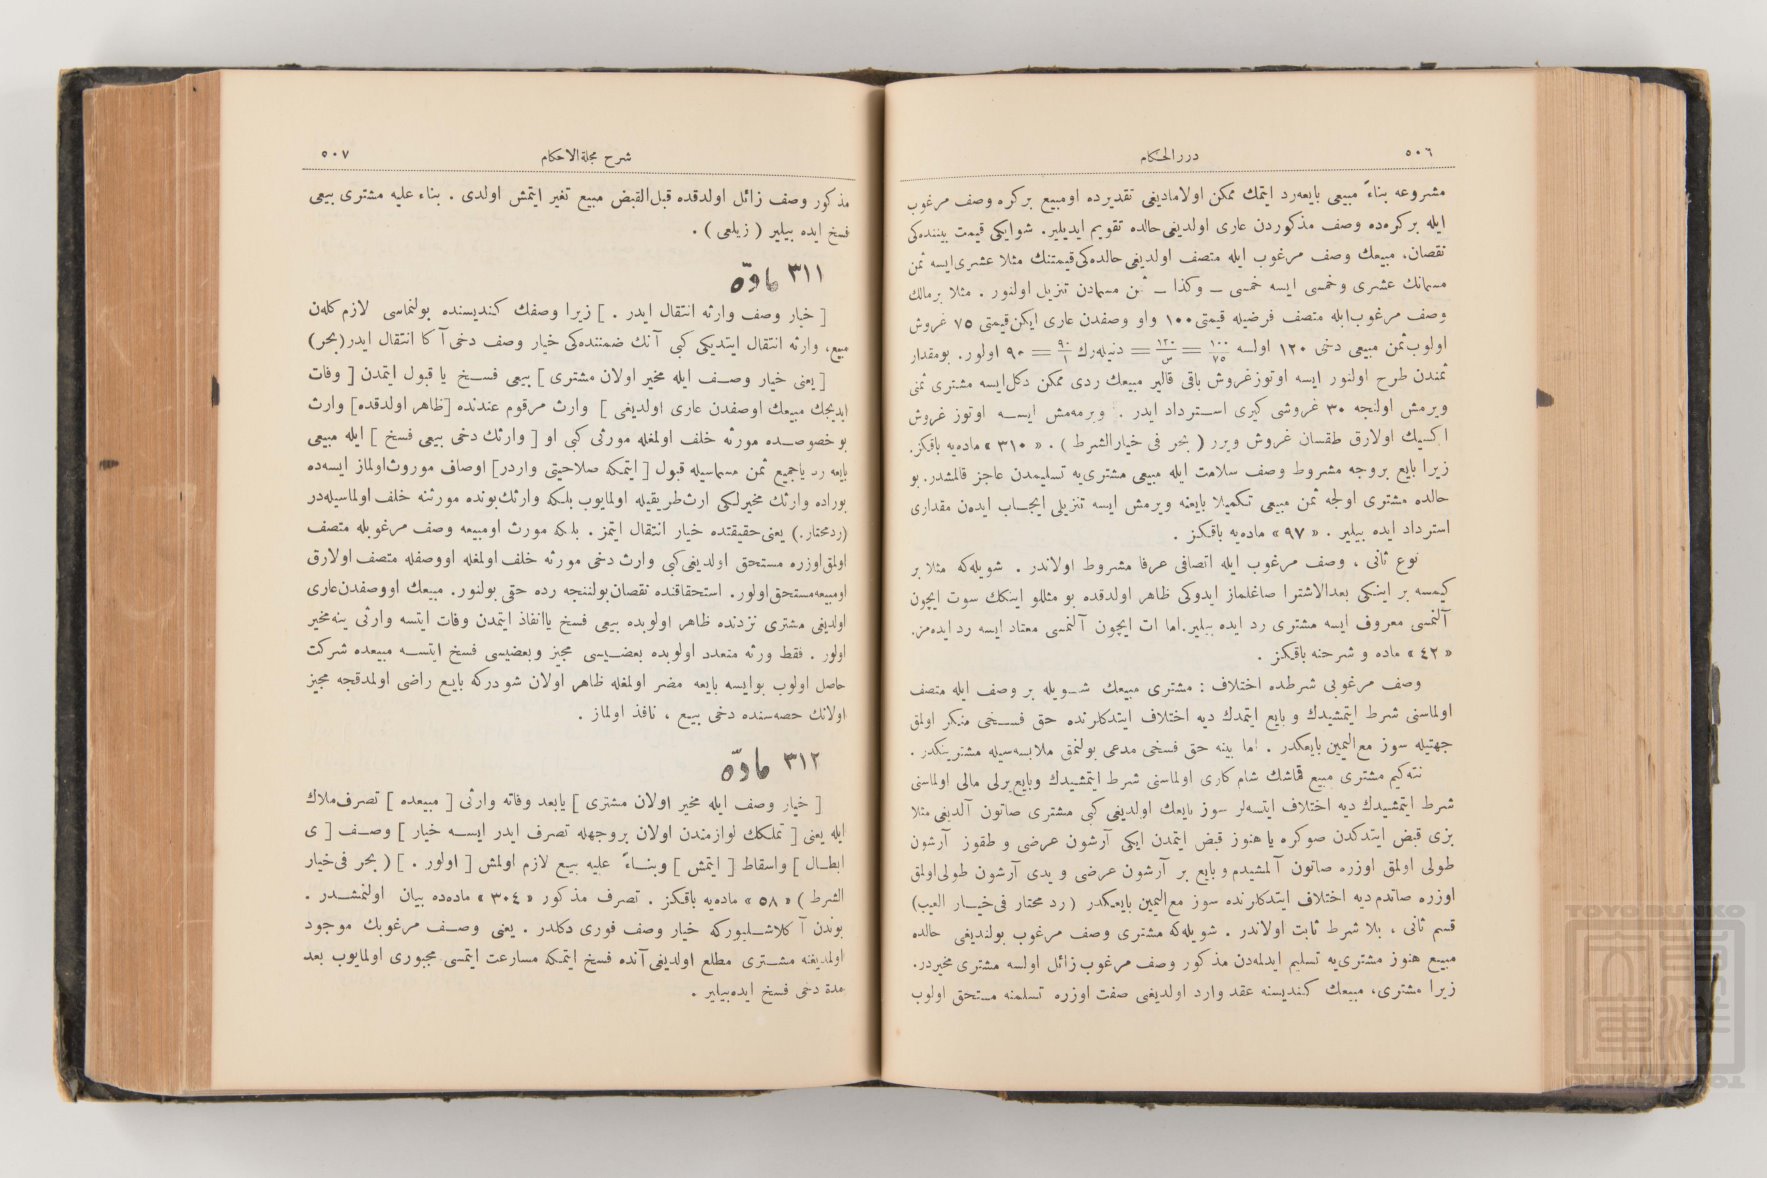 ٥٠٦
دررالحكام
مشروعه بناءً مبيعى بايعه‌رد ايتمك ممكن اولاماديغى تقديرده اومبيع بركره وصف مرغوب
ايله بركره‌ده وصف مذكوردن عارى اولديغى‌حالده تقويم ايديلير. شوايكى قيمت بيننده‌كى
نقصان، مبيعك وصف مرغوب ايله متصف اولديغى حالده‌كى‌قيمتنك مثلا عشرى‌ايسه ثمن
مسمانك عشرى وخمسى ايسه خمسى ــ وكذا ــ ثمن مسمادن تنزيل اولنور . مثلا برمالك
وصف مرغوب‌ايله متصف فرضيله قيمتى ١٠٠ واو وصفدن عارى ايكن‌قيمتى ٧٥ غروش
اولوب‌ثمن مبيعى دخى ١٢٠ اولسه ١٠٠/٧٥ = ١٢٠/س = دنيله‌رك ٩٠/١ = ٩٠ اولور. بومقدار
ثمندن طرح اولنور ايسه اوتوزغروش باقى قالير مبيعك ردى ممكن دكل‌ايسه مشترى ثمنى
ويرمش اولنجه ٣٠ غروشى كيرى اســترداد ايدر . ويرمه‌مش ايســه اوتوز غروش
اكسيك اولارق طقسان غروش ويرر ( بحر فى خيارالشرط ) . « ٣١٠ » ماده‌يه باقكز.
زيرا بايع بروجه مشروط وصف سلامت ايله مبيعى مشترى‌يه تسليمدن عاجز قالمشدر. بو
حالده مشترى اولجه ثمن مبيعى تكميلا بايعنه ويرمش ايسه تنزيلى ايجــاب ايده‌ن مقدارى
استرداد ايده بيلير . « ٩٧ » ماده‌يه باقكز .
نوع ثانى ، وصف مرغوب ايله اتصافى عرفا مشروط اولاندر . شويله‌كه مثلا بر
كيمسه بر اينكى بعدالاشترا صاغلماز ايدوكى ظاهر اولدقده بو مثللو اينكك سوت ايچون
آلنمسى معروف ايسه مشترى رد ايده بيلير.اما ات ايچون آلنمسى معتاد ايسه رد ايده‌مز.
« ٤٣ » ماده و شرحنه باقكز .
وصف مرغوبى شرطده اختلاف : مشترى مبيعك شــويله بر وصف ايله متصف
اولماسنى شرط ايتمشيدك و بايع ايتمدك ديه اختلاف ايتدكلرنده حق فســخى منكر اولمق
جهتيله سوز مع‌اليمين بايعكدر . اما بينه حق فسخى مدعى بولنمق ملابسه‌سيله مشترينكدر .
نته‌كيم مشترى مبيع قماشك شام كارى اولماسنى شرط ايتمشيدك وبايع‌يرلى مالى اولماسنى
شرط ايتمشيدك ديه اختلاف ايتسه‌لر سوز بايعك اولديغى كبى مشترى صاتون آلديغى مثلا
بزى قبض ايتدكدن صوكره ياهنوز قبض ايتمدن ايكى آرشون عرضى و طقوز آرشون
طولى اولمق اوزره صاتون آلمشيدم و بايع بر آرشون عرضى و يدى آرشون طولى‌اولمق
اوزره صاتدم‌ديه اختلاف ايتدكلرنده سوز مع‌اليمين بايعيكدر (رد محتار فى‌خيــار العيب)
قسم ثانى ، بلا شرط ثابت اولاندر . شويله‌كه مشترى وصف مرغوب بولنديغى حالده
مبيع هنوز مشترى‌يه تسليم ايدلمه‌دن مذكور وصف مرغوب‌زائل اولسه مشترى‌مخيردر.
زيرا مشترى، مبيعك كنديسنه عقد وارد اولديغى صفت اوزره تسلمنه مستحق اولوب
شرح مجلة‌الاحكام
٥٠٧
مذكور وصف زائل اولدقده قبل‌القبض مبيع تغير ايتمش اولدى . بناء عليه مشترى بيعى
فسخ ايده بيلير ( زيلعى ) .
٣١١ مادّه
[ خيار وصف وارثه انتقال ايدر . ] زيرا وصفك كنديسنده بولنماسى لازم‌كلن
مبيع، وارثه انتقال ايتديكى كبى آنك ضمننده‌كى خيار وصف دخى‌آكا انتقال ايدر(بحر)
[ يعنى خيار وصــف ايله مخير اولان مشترى ] بيعى فســخ يا قبول ايتمدن [ وفات
ايديجك مبيعك اوصفدن عارى اولديغى ] وارث مرقوم عندنده [ظاهر اولدقده] وارث
بوخصوصــده مورثه خلف اولمغله مورثى كبى او [ وارثك دخى بيعى فسخ ] ايله مبيعى
بايعه رد ياجميع ثمن مسماسيله قبول [ ايتمكه صلاحيتى واردر] اوصاف موروث‌اولماز ايسه‌ده
بوراده وارثك مخيرلكى ارث‌طريقيله اولمايوب بلكه وارثك‌بونده مورثنه خلف‌اولماسيله‌در
(ردمحتار.) يعنى‌حقيقتده خيار انتقال ايتمز . بلكه مورث اومبيعه وصف مرغوبله متصف
اولمق‌اوزره مستحق اولديغى‌كبى وارث دخى مورثه خلف‌اولمغله اووصفله متصف اولارق
اومبيعه‌مستحق‌اولور. استحقاقنده نقصان‌بولننجه رده حقى بولنور. مبيعك اووصفدن‌عارى
اولديغى مشترى نزدنده ظاهر اولوبده بيعى فسخ ياانفاذ ايتمدن وفات ايتسه وارثى ينه‌مخير
اولور . فقط ورثه متعدد اولوبده بعضــيسى مجيز وبعضيسى فسخ ايتســه مبيعده شركت
حاصل اولوب بوايسه بايعه مضر اولمغله ظاهر اولان شودركه بايــع راضى اولمدقجه مجيز
اولانك حصه‌سنده دخى بيــع ، نافذ اولماز .
٣١٢ مادّه
[ خيار وصف ايله مخير اولان مشترى ] يابعد وفاته وارثى [ مبيعده ] تصرف‌ملاك
ايله يعنى [ تملكك لوازمندن اولان بروجهله تصرف ايدر ايســه خيار ] وصــف [ ى
ابطــال ] واسقاط [ ايتمش ] وبنــاءً عليه بيــع لازم اولمش [ اولور . ] ( بحر فى‌خيار
الشرط ) « ٥٨ » ماده‌يه باقكز . تصرف مذكور « ٣٠٤ » ماده‌ده بيان اولنمشــدر .
بوندن آكلاشــليوركه خيار وصف فورى دكلدر . يعنى وصــف مرغوبك موجود
اولمديغنه مشــترى مطلع اولديغى‌آنده فسخ ايتمكه مسارعت ايتمسى مجبورى اولمايوب بعد
مدة دخى فسخ ايده‌بيلير .
TOYO BUNKO